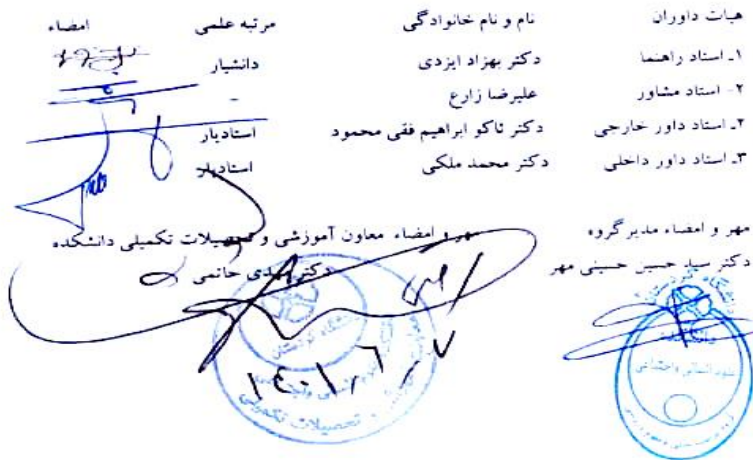 هیات داوران نام و نام خانوادگی مرتبه علمی امضاء
۱ـ استاد راهنما دکتر بهزاد ایزدی دانشیار
۲- استاد مشاور علیرضا زارع -
۲ـ استاد داور خارجی دکتر ئاکو ابراهیم فقی محمود استادیار
۳ـ استاد داور داخلی دکتر محمد ملکی استادیار
مهر و امضاء مدیر گروه مهر و امضاء معاون آموزشی و تحصیلات تکمیلی دانشکده
دکتر سید حسین حسینی مهر دکتر مهدی حاتمی
۱۴۰۱٫۶٫۷
تحصیلات تکمیلی